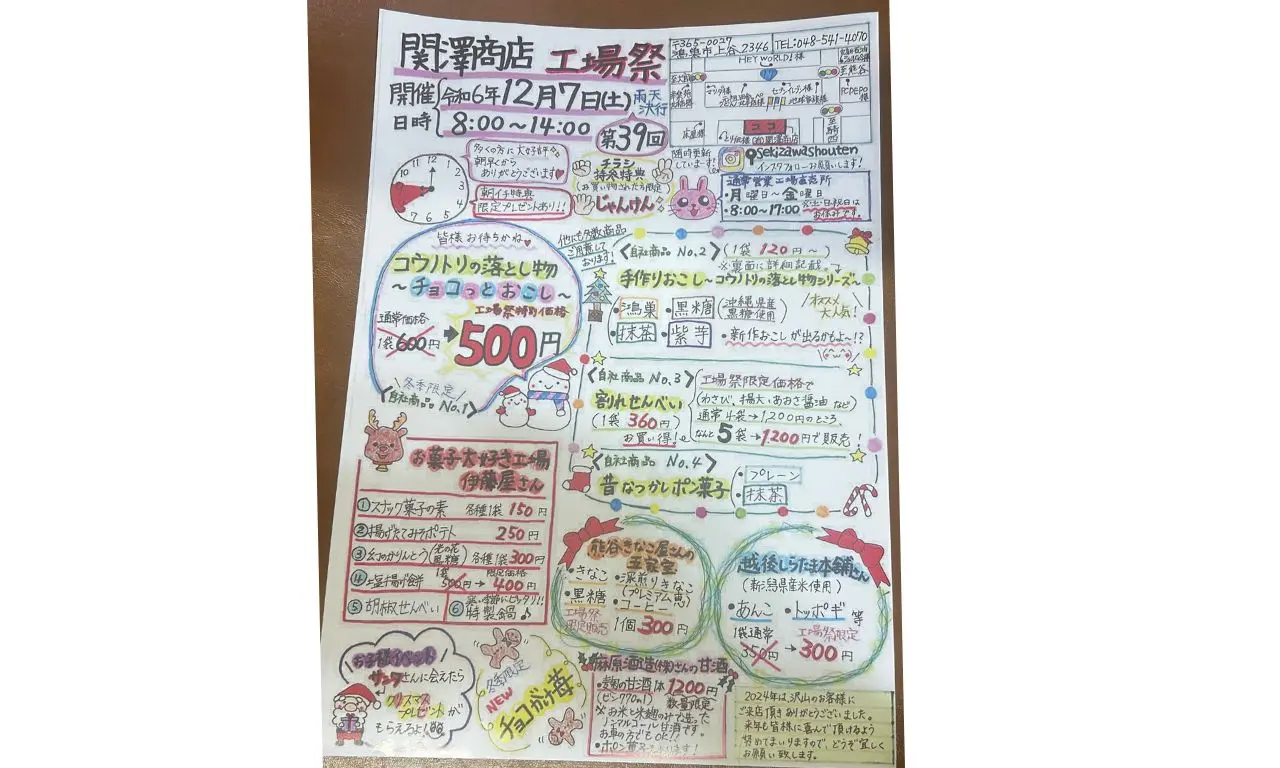 関澤商店 工場祭
開催日時
令和6年12月7日(土)雨天決行
8:00〜14:00
第39回
〒365-0027
鴻巣市上谷2346
TEL:048-541-4070
HEY WORLD!様
マツダ様
セブンイレブン様
PCDEPO様
床屋様
ココ
(株)関澤商店
随時更新しています!
sekizawashouten
インスタフォローお願いします!
12
11
1
10
2
3
4
5
6
7
多くの方に大好評
朝早くから
ありがとうございます
朝イチ特典
限定プレゼントあり!!
チラシ
持参特典
(お買い物された方限定)
じゃんけん
通常営業工場直売所
・月曜日〜金曜日
・8:00〜17:00
※土・日・祝日は
お休みです。
皆様お待ちかね
コウノトリの落とし物
〜チョコっとおこし〜
工場祭特別価格
通常価格
1袋600円→500円
冬季限定
〈自社商品 No.1〉
他にも多数商品
ご用意して
おります!
〈自社商品 No.2〉(1袋120円〜)
※裏面に詳細記載。
手作りおこし〜コウノトリの落とし物シリーズ〜
・鴻巣 ・黒糖(沖縄県産黒糖使用)
オススメ
大人気!
・抹茶 ・紫芋 ・新作おこしが出るかもよ〜!?
〈自社商品 No.3〉
割れせんべい
(1袋360円)
お買い得!
工場祭限定価格で
(わさび、揚大、あおさ醤油 など)
通常4袋→1,200円のところ
なんと5袋→1200円で販売!
〈自社商品 No.4〉
昔なつかしポン菓子
・プレーン
・抹茶
お菓子大好き工場
伊藤屋さん
①スナック菓子の素 各種1袋150円
②揚げたてみそポテト 250円
③幻のかりんとう 各種1袋300円
④塩揚げ餅 1袋500円→限定価格400円
⑤胡椒せんべい
⑥寒い季節にピッタリ!!
特製鍋♪
熊谷きなこ屋さんの
五家宝
・きなこ ・深煎りきなこ
(プレミアム恵)
・黒糖 ・コーヒー
工場祭
限定販売
1個300円
越後しらたま本舗さん
(新潟県産米使用)
・あんこ ・トッポギ 等
1袋通常
350円→工場祭限定
300円
お子様イベント
サンタさんに会えたら
クリスマス
プレゼントが
もらえるよ!
冬季限定
NEW
チョコがけ苺
麻原酒造(株)さんの甘酒
・麹の甘酒1本1200円
(ビン770ml) 数量限定
※お米と米麹のみで造った
ノンアルコール甘酒です。
お車の方でもOK!!
2024年は、沢山のお客様に
ご来店頂きありがとうございました。
来年も皆様に喜んで頂けるよう
努めてまいりますので、どうぞ宜しく
お願い致します。